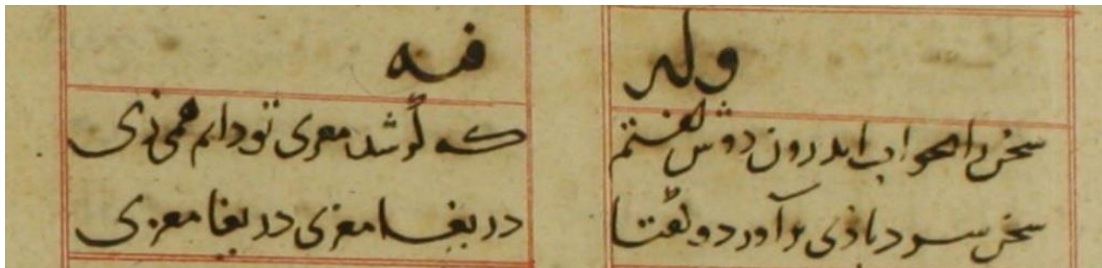 وله فیه
سخن را بخواب اندرون دوش گفتم که گر شد معزی تو دایم همی زی
سخن سرد بادی برآورد و گفتا دریغا معزی دریغا معزی